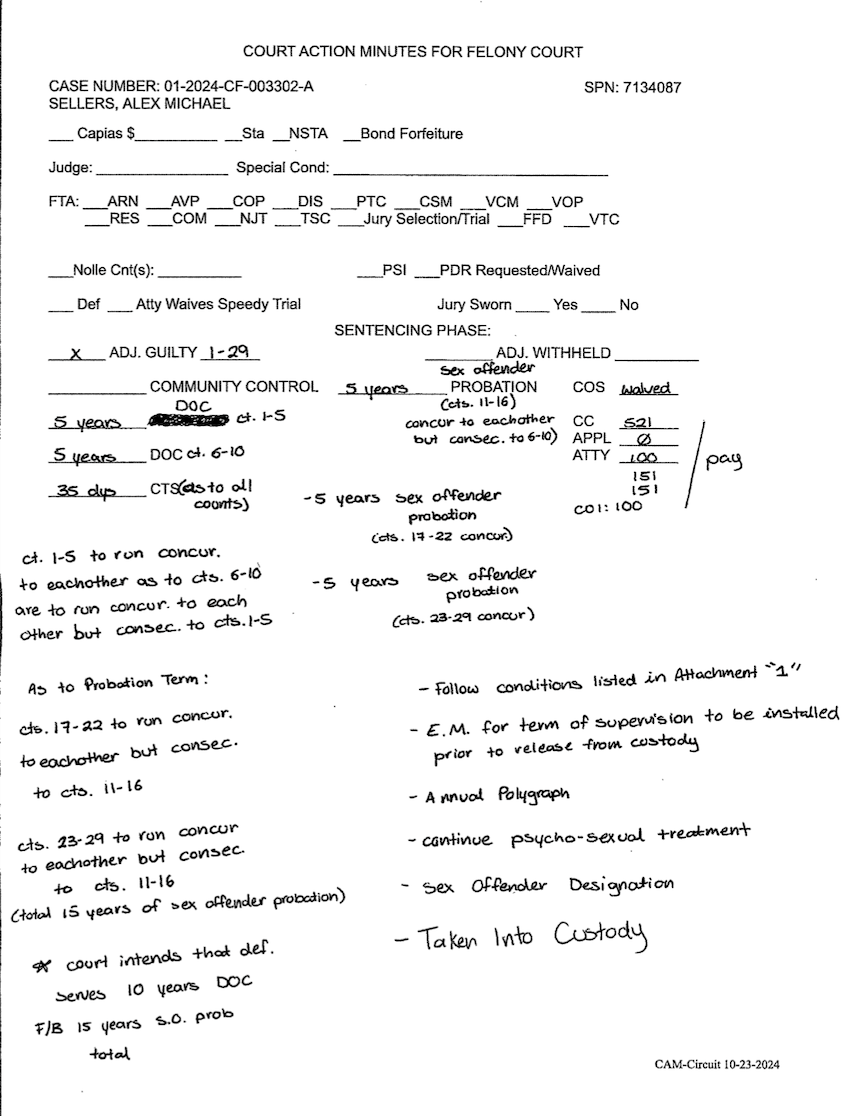 COURT ACTION MINUTES FOR FELONY COURT
CASE NUMBER: 01-2024-CF-003302-A SPN: 7134087
SELLERS, ALEX MICHAEL
___ Capias $__________ __Sta __NSTA __Bond Forfeiture
Judge: ________________ Special Cond: __________________________________
FTA: ___ARN ___AVP ___COP ___DIS ___PTC ___CSM ___VCM ___VOP
___RES ___COM ___NJT ___TSC ___Jury Selection/Trial ___FFD ___VTC
___Nolle Cnt(s): __________ ___PSI ___PDR Requested/Waived
___ Def ___ Atty Waives Speedy Trial Jury Sworn ____ Yes ____ No
SENTENCING PHASE:
x ADJ. GUILTY 1-29 ________ ADJ. WITHHELD __________
____________ COMMUNITY CONTROL 5 years sex offender PROBATION COS waived
(cts. 11-16)
concur to eachother
but consec. to 6-10)
5 years DOC ct. 1-5
5 years DOC ct. 6-10
35 dys CTS (as to all
counts)
CC 521
APPL Ø
ATTY 100
151
151
COI: 100
pay
-5 years sex offender
probation
(cts. 17-22 concur.)
-5 years sex offender
probation
(cts. 23-29 concur)
ct. 1-5 to run concur.
to eachother as to cts. 6-10
are to run concur. to each
other but consec. to cts. 1-5
As to Probation Term:
cts. 17-22 to run concur.
to eachother but consec.
to cts. 11-16
cts. 23-29 to run concur
to eachother but consec.
to cts. 11-16
(total 15 years of sex offender probation)
* court intends that def.
serves 10 years DOC
F/B 15 years s.o. prob
total
- Follow conditions listed in Attachment "1"
- E.M. for term of supervision to be installed
prior to release from custody
- Annual Polygraph
- continue psycho-sexual treatment
- Sex Offender Designation
- Taken Into Custody
CAM-Circuit 10-23-2024